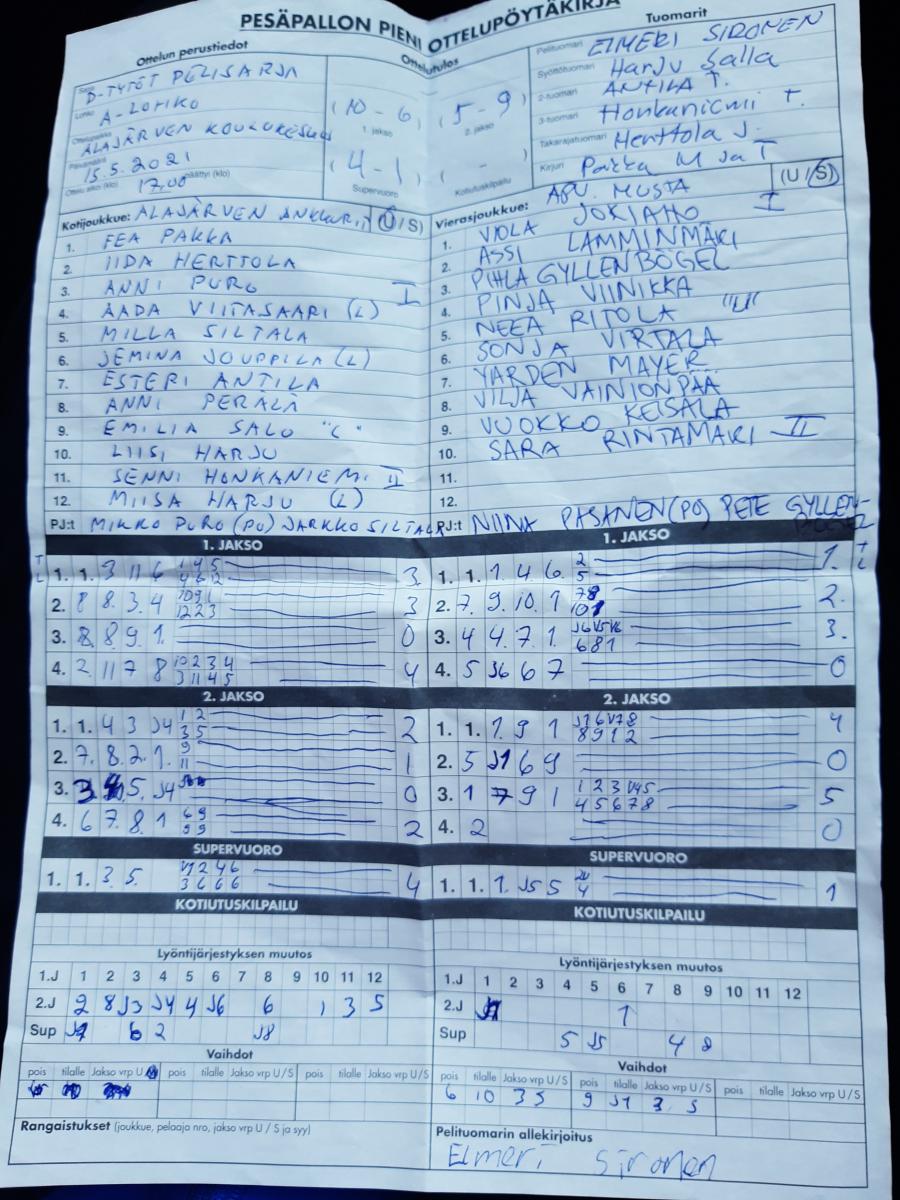 PESÄPALLON PIENI OTTELUPÖYTÄKIRJA
Ottelun perustiedot
D-TYTÖT PELISARJA
Lohko A-LOHKO
Ottelupaikka ALAJÄRVEN KOULUKESKUS
Päivämäärä 15.5.2021
Ottelu alkoi (klo) 17.00 päättyi (klo)
Ottelutulos
(10 - 6) (5 - 9)
1. jakso 2. jakso
(4 - 1) ( - )
Supervuoro Kotiutuskilpailu
Tuomarit
Pelituomari ELMERI SIRONEN
Syöttötuomari Harju Salla
2-tuomari ANTILA T.
3-tuomari Honkaniemi T.
Takarajatuomari Herttola J.
Kirjuri Pakka M ja T
APU. MUSTA
Kotijoukkue: ALAJÄRVEN ANKKURIT (U/S)
1. FEA PAKKA
2. IIDA HERTTOLA
3. ANNI PURO I
4. AADA VIITASAARI (L)
5. MILLA SILTALA
6. JEMINA JOUPPILA (L)
7. ESTERI ANTILA
8. ANNI PERÄLÄ
9. EMILIA SALO "C"
10. LIISI HARJU
11. SENNI HONKANIEMI II
12. MIISA HARJU (L)
PJ:t MIKKO PURO (PJ) JARKKO SILTALA
Vierasjoukkue: (U/S)
1. VIOLA JOKIAHO I
2. ASSI LAMMINMÄKI
3. PIHLA GYLLENBÖGEL
4. PINJA VIINIKKA
5. NEEA RITOLA "U"
6. SONJA VIRTALA
7. YARDEN MAYER
8. VILJA VAINIONPÄÄ
9. VUOKKO KEISALA
10. SARA RINTAMÄKI II
11.
12.
PJ:t NIINA PASANEN (PJ) PETE GYLLEN-
BÖGEL
1. JAKSO
1. 1. 3 11 6 3
2. 8 8. 3. 4 3
3. 8. 8 9 1. 0
4. 2 11 7 8 4
1. JAKSO
1. 1. 1. 4. 6. 2 5 1.
2. 7. 9. 10. 1 2.
3. 4 4. 7. 1. 3.
4. 5 J6 6 7 0
2. JAKSO
1. 1. 4 3 J4 1 2 3 5 2
2. 7. 8. 2. 1. 9 11 1
3. 5. J4 0
4. 6 7. 8. 1 2
2. JAKSO
1. 1. 1. 9 1 4
2. 5 J1 6 9 0
3. 1 7 9 1 5
4. 2 0
SUPERVUORO
1. 1. 3 5. 4
SUPERVUORO
1. 1. 1. J5 5 1
KOTIUTUSKILPAILU
KOTIUTUSKILPAILU
Lyöntijärjestyksen muutos
1.J 1 2 3 4 5 6 7 8 9 10 11 12
2.J 2 8 J3 J4 4 J6 6 1 3 5
Sup 6 2 J8
Lyöntijärjestyksen muutos
1.J 1 2 3 4 5 6 7 8 9 10 11 12
2.J 1
Sup 5 J5 4 8
Vaihdot
pois tilalle Jakso vrp U/S pois tilalle Jakso vrp U/S pois tilalle Jakso vrp U/S
Vaihdot
pois tilalle Jakso vrp U/S pois tilalle Jakso vrp U/S pois tilalle Jakso vrp U/S
6 10 3 S 9 J1 3 S
Rangaistukset (joukkue, pelaaja nro, jakso vrp U / S ja syy)
Pelituomarin allekirjoitus
Elmeri Sironen